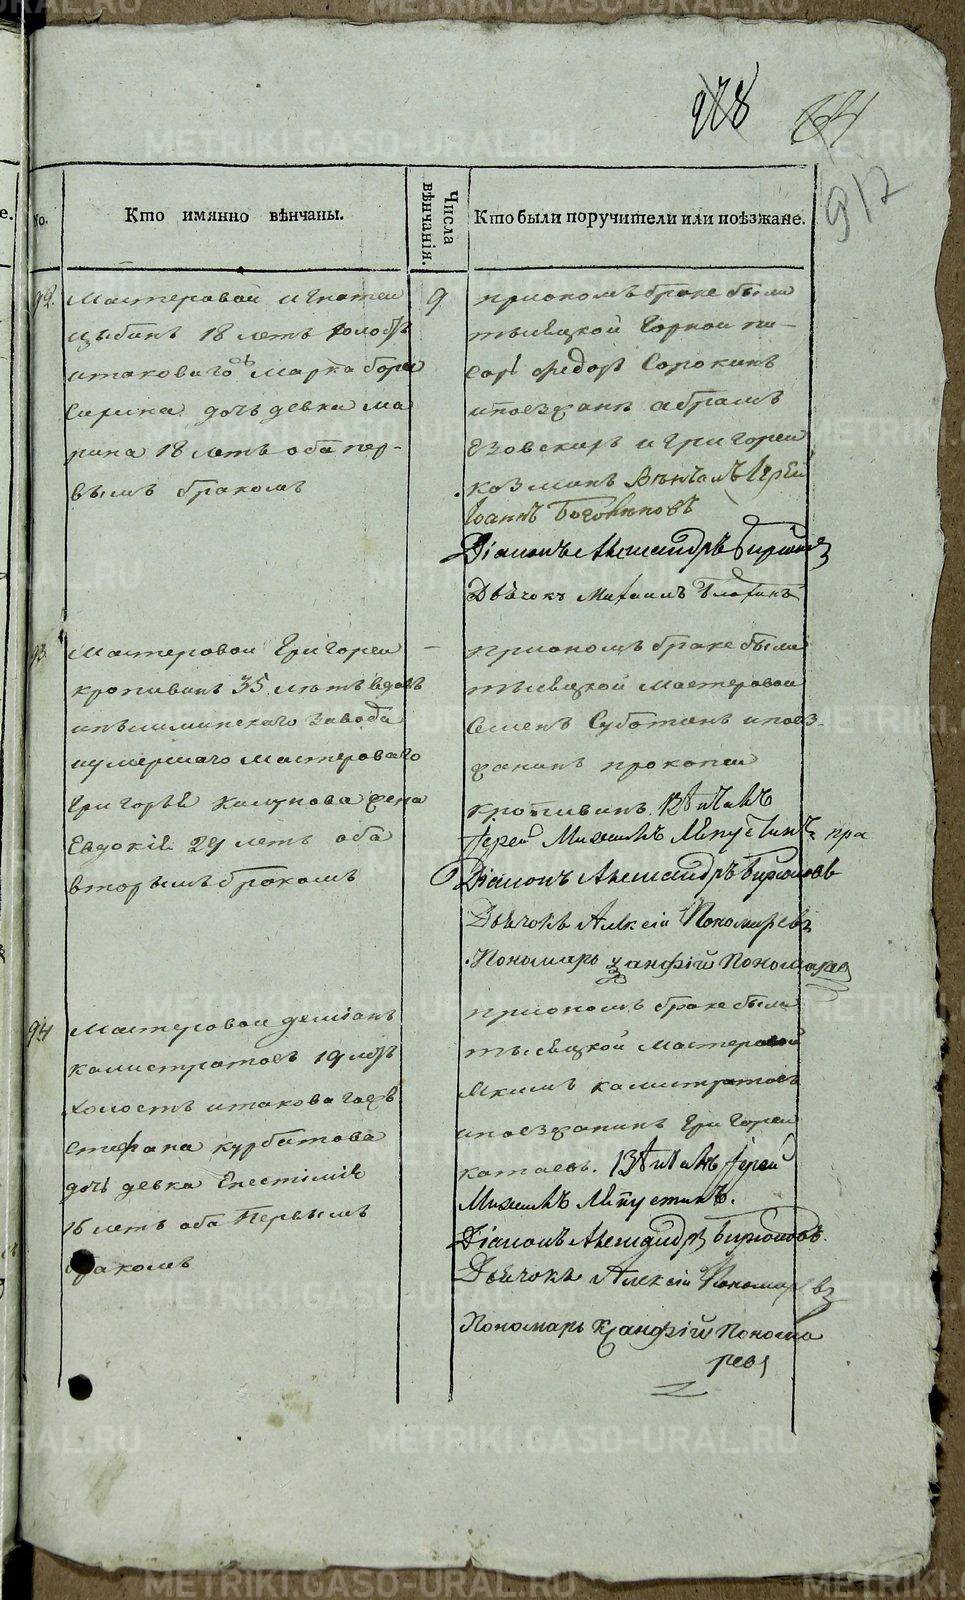 978 64
917
No.
Кто имянно вѣнчаны.
Числа вѣнчанія.
Кто были поручители или поѣзжане.
92
Мастеровои игнатеи
цыбинъ 18 летъ холостъ
итаковагожъ марка бори
сихина дочь девка ма
рина 18 летъ оба пер-
вымъ бракомъ
9
приономъ браке были
тысяцкой горнои пи-
сарь федоръ Сорокинъ
ипоезжанъ абрамъ
и григореи
козминъ Вѣнчалъ Іерей
Іоаннъ
Діаконъ Александръ Бирюковъ
Дьячокъ Михаилъ
93
Мастеровои Григореи
кропивинъ 35 летъ вдовъ
завода
умершаго мастероваго
григорья жена
Евдокия 29 летъ оба
вторымъ бракомъ
—
приономъ браке были
тысяцкой мастеровои
Семенъ Суботинъ ипоез-
жанинъ прокопеи
кропивинъ. Вѣнчалъ
Іерей Михаилъ
Діаконъ Александръ Бирюковъ
Дьячокъ Алексій Пономаревъ
Пономарь Ксанфій Пономаревъ
94
Мастеровои деміянъ
калистратовъ 19 летъ
холостъ итаковагожъ
Стефана курбатова
дочь девка
16 летъ оба Первымъ
бракомъ
приономъ браке были
тысяцкой мастеровой
Якимъ калистратовъ
ипоезжанинъ Григореи
катаевъ. Вѣнчалъ Іерей
Михаилъ
Діаконъ Александръ Бирюковъ.
Дьячокъ Алексій Пономаревъ
Пономарь Ксанфій Понома
ревъ
METRIKI.GASO-URAL.RU